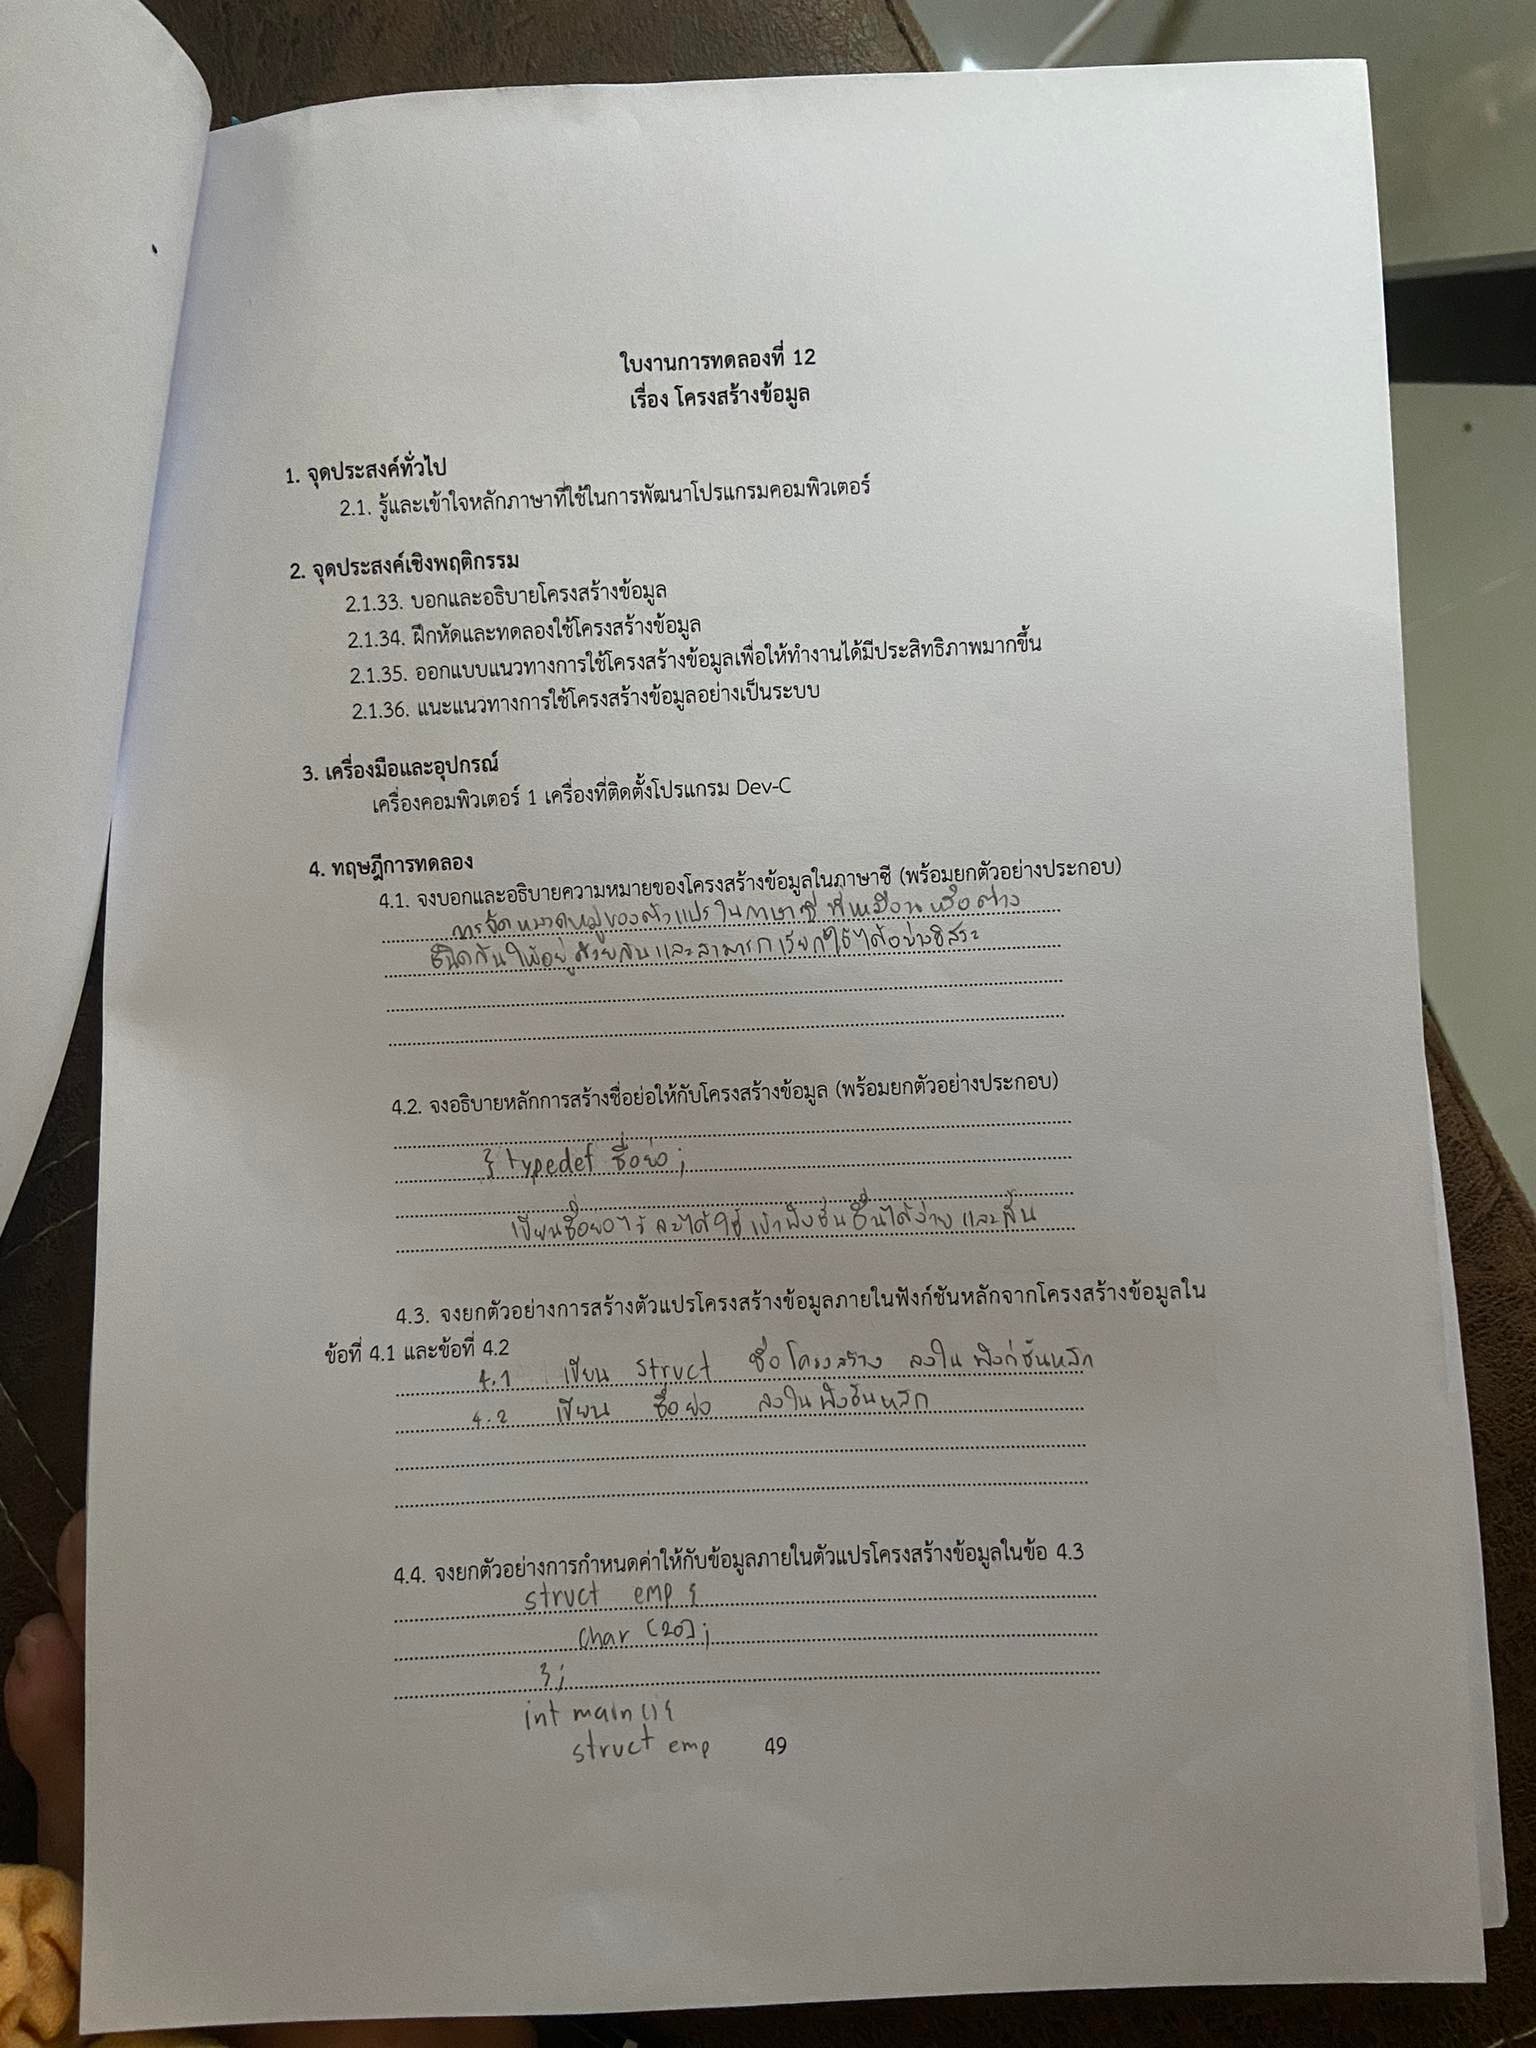 ใบงานการทดลองที่ 12
เรื่อง โครงสร้างข้อมูล
1. จุดประสงค์ทั่วไป
2.1. รู้และเข้าใจหลักภาษาที่ใช้ในการพัฒนาโปรแกรมคอมพิวเตอร์
2. จุดประสงค์เชิงพฤติกรรม
2.1.33. บอกและอธิบายโครงสร้างข้อมูล
2.1.34. ฝึกหัดและทดลองใช้โครงสร้างข้อมูล
2.1.35. ออกแบบแนวทางการใช้โครงสร้างข้อมูลเพื่อให้ทำงานได้มีประสิทธิภาพมากขึ้น
2.1.36. แนะแนวทางการใช้โครงสร้างข้อมูลอย่างเป็นระบบ
3. เครื่องมือและอุปกรณ์
เครื่องคอมพิวเตอร์ 1 เครื่องที่ติดตั้งโปรแกรม Dev-C
4. ทฤษฎีการทดลอง
4.1. จงบอกและอธิบายความหมายของโครงสร้างข้อมูลในภาษาซี (พร้อมยกตัวอย่างประกอบ)
การจัดหมวดหมู่ของตัวแปรในภาษาซี ที่เหมือนหรือต่าง
ชนิดกันให้อยู่ด้วยกันและสามารถเรียกใช้ได้อย่างอิสระ
4.2. จงอธิบายหลักการสร้างชื่อย่อให้กับโครงสร้างข้อมูล (พร้อมยกตัวอย่างประกอบ)
} typedef ชื่อย่อ;
เขียนชื่อย่อไว้ จะได้ใช้ ได้ง่าย และสั้น
4.3. จงยกตัวอย่างการสร้างตัวแปรโครงสร้างข้อมูลภายในฟังก์ชันหลักจากโครงสร้างข้อมูลใน
ข้อที่ 4.1 และข้อที่ 4.2
4.1 เขียน struct ชื่อโครงสร้าง ลงในฟังก์ชันหลัก
4.2 เขียน ชื่อย่อ ลงในฟังชันหลัก
4.4. จงยกตัวอย่างการกำหนดค่าให้กับข้อมูลภายในตัวแปรโครงสร้างข้อมูลในข้อ 4.3
struct emp {
char [20];
};
int main () {
struct emp
49